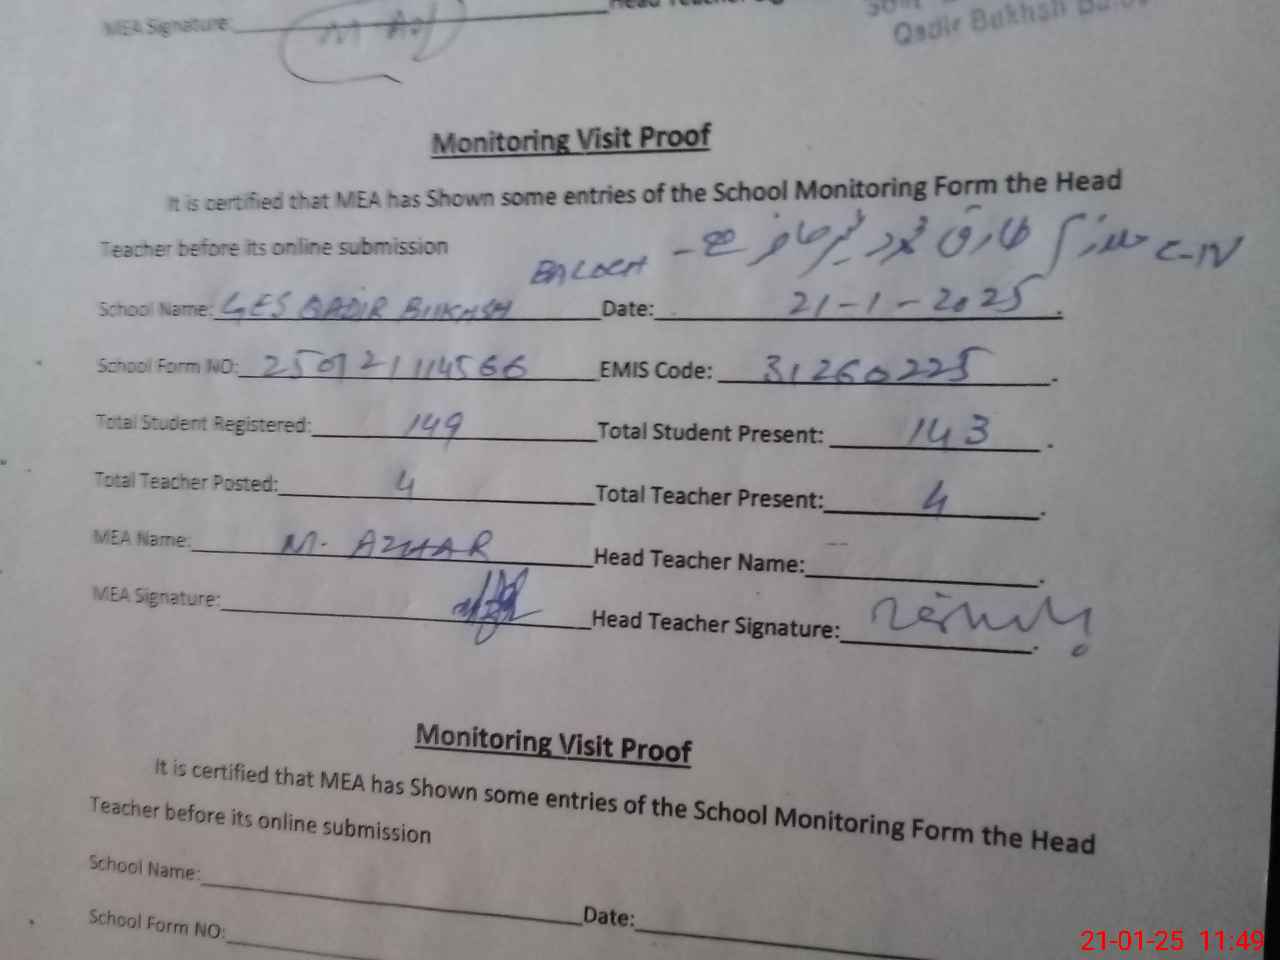 MEA Signature:
Qadir Bukhsh
Monitoring Visit Proof
It is certified that MEA has Shown some entries of the School Monitoring Form the Head
Teacher before its online submission
C-IV
School Name: GES QADIR BUKHSH BALOCH Date: 21-1-2025.
School Form NO: 250121114566 EMIS Code: 31260225.
Total Student Registered: 149 Total Student Present: 143.
Total Teacher Posted: 4 Total Teacher Present: 4.
MEA Name: M. AZHAR Head Teacher Name:.
MEA Signature: Head Teacher Signature:.
Monitoring Visit Proof
It is certified that MEA has Shown some entries of the School Monitoring Form the Head
Teacher before its online submission
School Name: Date:
School Form NO:
21-01-25 11:49